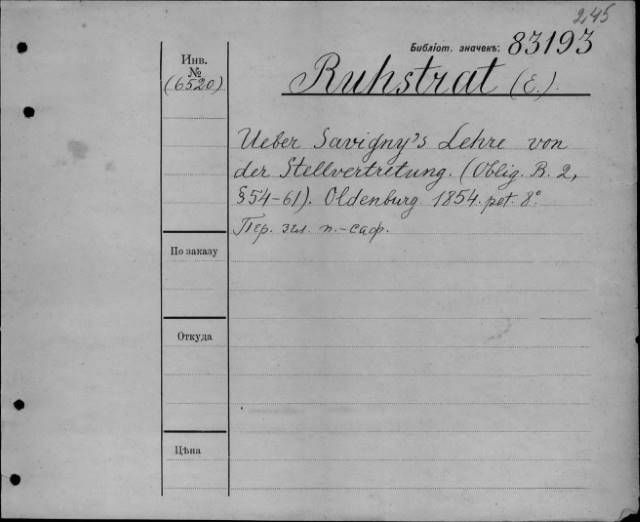 2,45
Библіот. значекъ: 83193
Инв.
№
(6520)
Ruhstrat (E.)
Ueber Savigny's Lehre von
der Stellvertretung. (Oblig. B. 2,
§54-61). Oldenburg 1854. pet. 8°
Пер. згл. п.-саф.
По заказу
Откуда
Цѣна